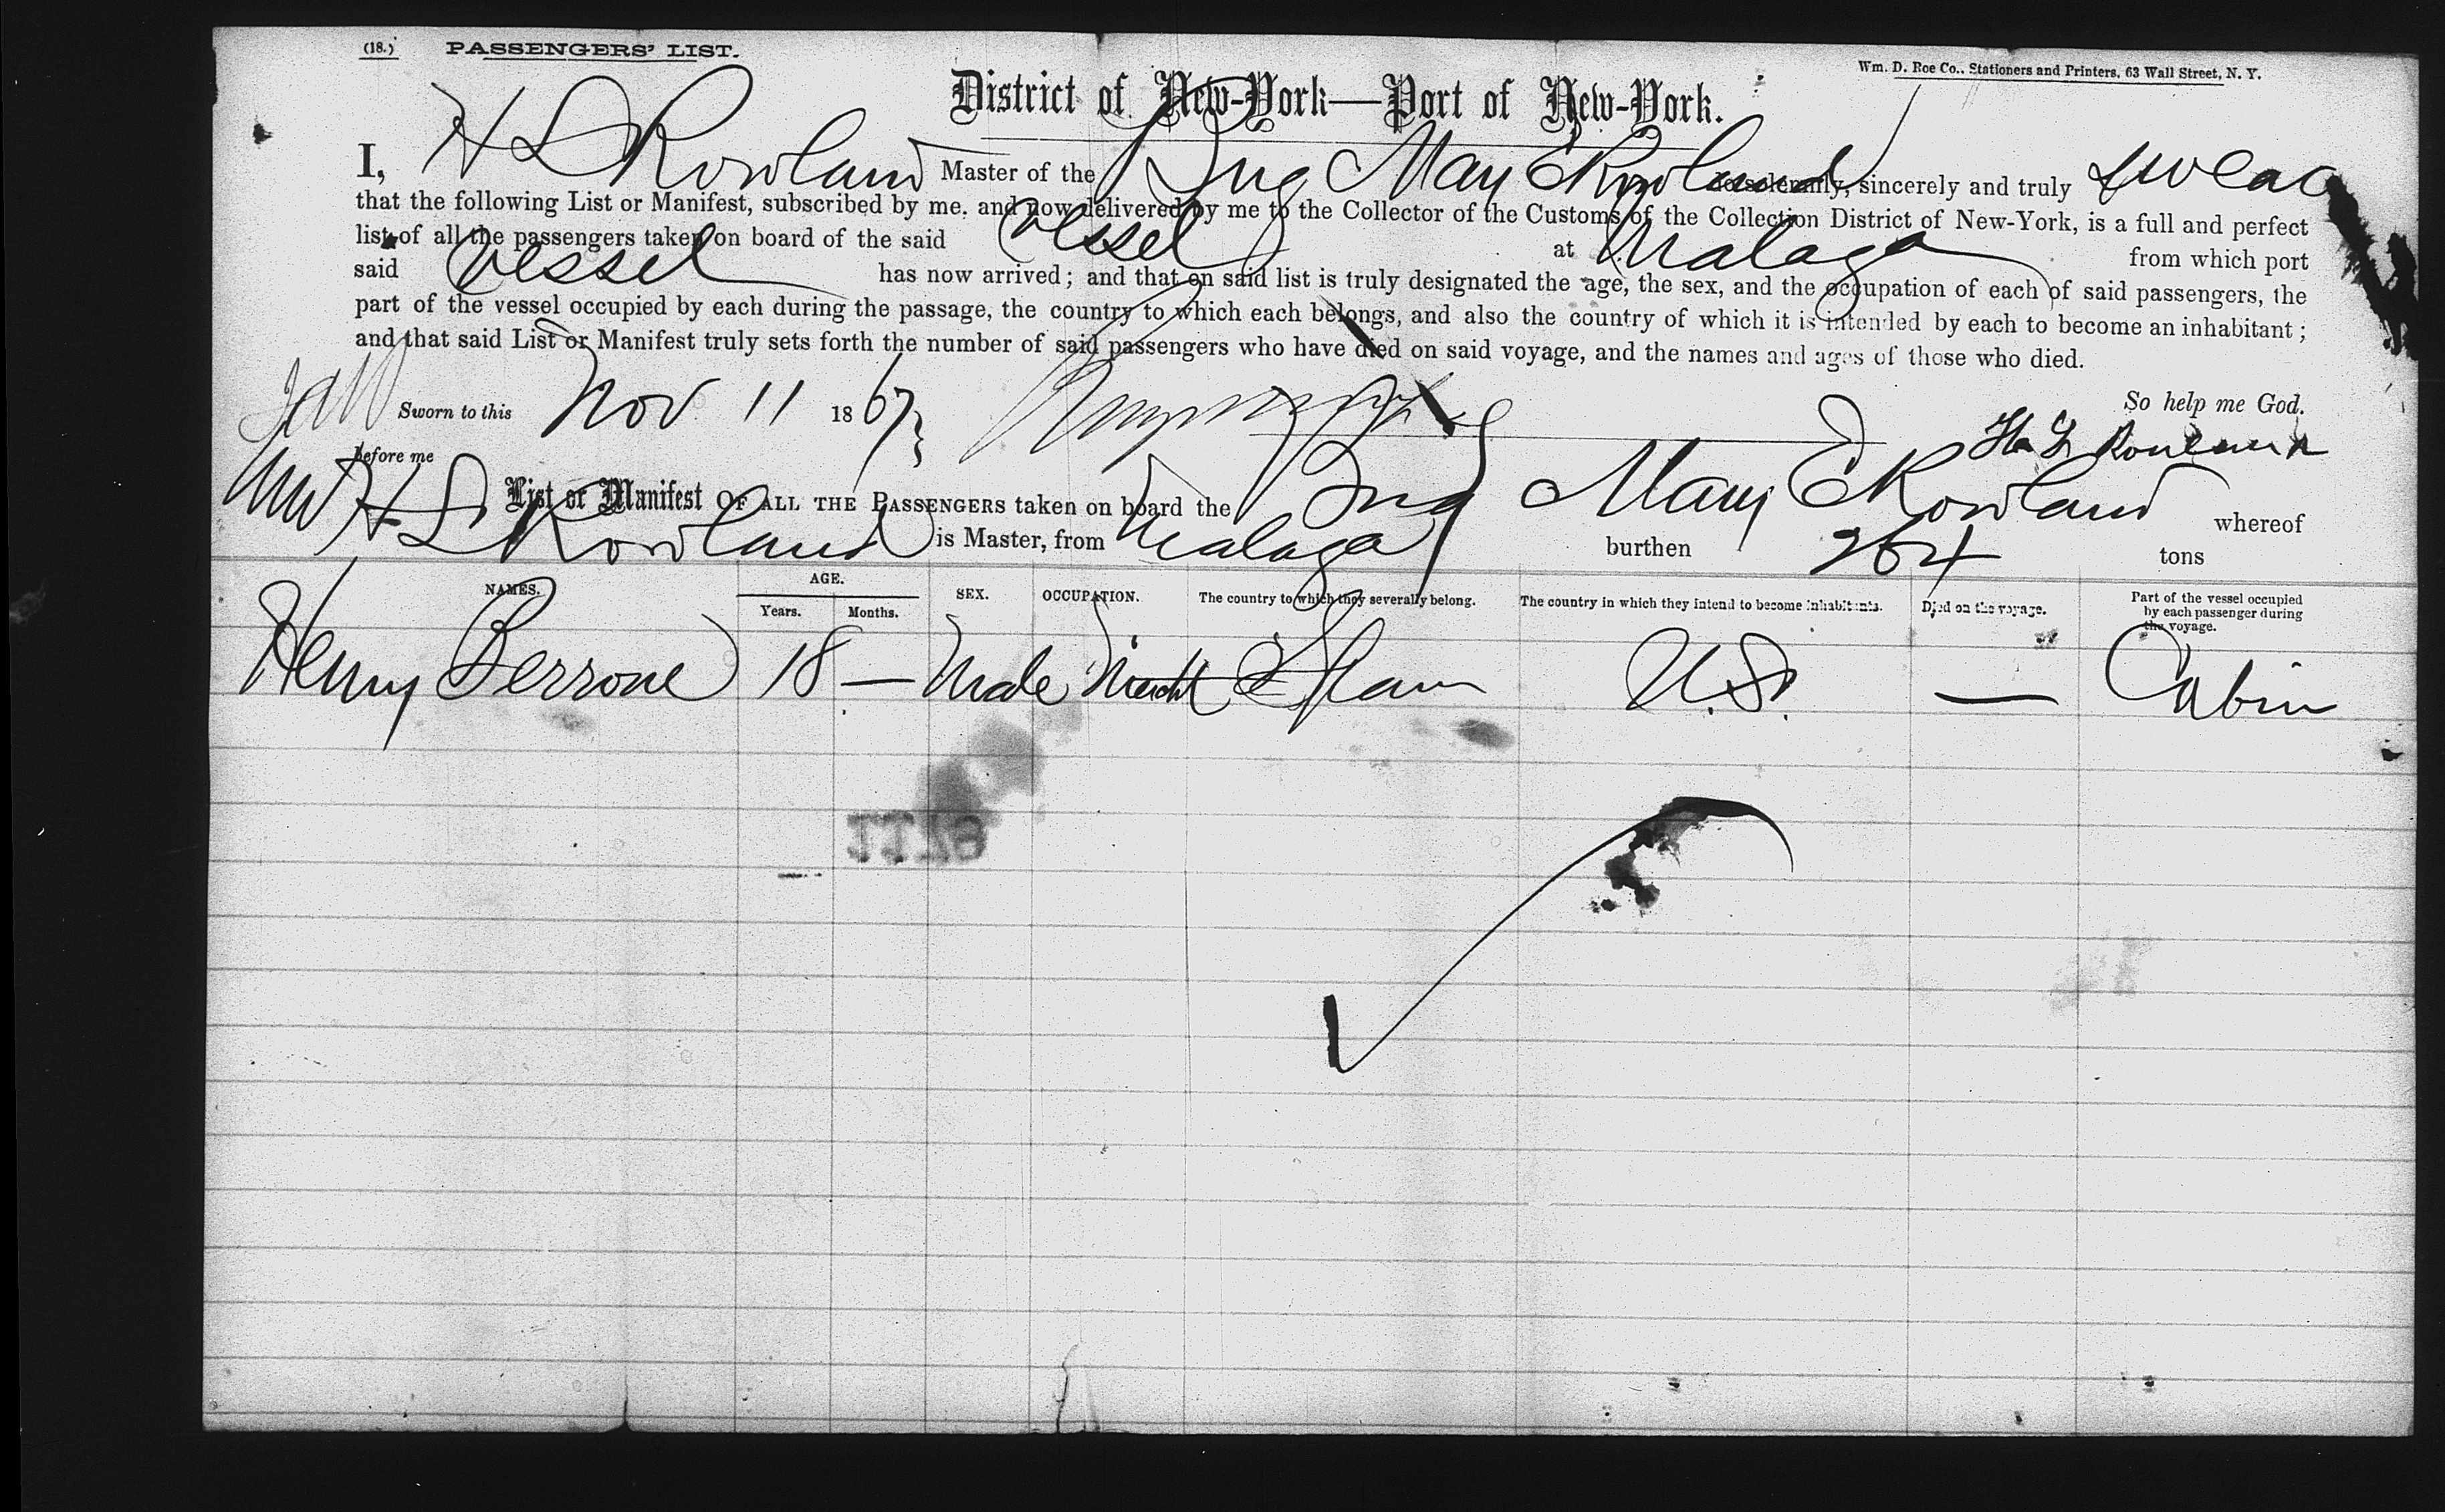 (18.) PASSENGERS' LIST.
Wm. D. Roe Co., Stationers and Printers, 63 Wall Street, N. Y.
District of New-York—Port of New-York.
I, H L Rowland Master of the Brig Mary E Rowland do solemnly, sincerely and truly swear
that the following List or Manifest, subscribed by me, and now delivered by me to the Collector of the Customs of the Collection District of New-York, is a full and perfect
list of all the passengers taken on board of the said Vessel at Malaga from which port
said Vessel has now arrived; and that on said list is truly designated the age, the sex, and the occupation of each of said passengers, the
part of the vessel occupied by each during the passage, the country to which each belongs, and also the country of which it is intended by each to become an inhabitant;
and that said List or Manifest truly sets forth the number of said passengers who have died on said voyage, and the names and ages of those who died.
So help me God.
Sworn to this Nov 11 1867
H L Rowland
before me
List or Manifest OF ALL THE PASSENGERS taken on board the Brig Mary E Rowland whereof
H L Rowland is Master, from Malaga burthen 264 tons
NAMES. AGE. SEX. OCCUPATION. The country to which they severally belong. The country in which they intend to become inhabitants. Died on the voyage. Part of the vessel occupied by each passenger during the voyage.
Years. Months.
Henry Berrone 18 — Male Mercht Spain U.S. — Cabin